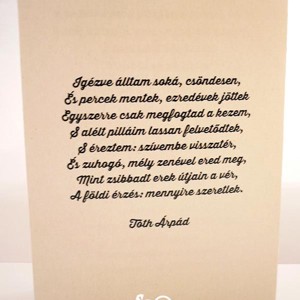 Igézve álltam soká, csöndesen,
És percek mentek, ezredévek jöttek
Egyszerre csak megfogtad a kezem,
S alélt pilláim lassan felvetődtek,
S éreztem: szívembe visszatér,
És zuhogó, mély zenével ered meg,
Mint zsibbadt erek útjain a vér,
A földi érzés: mennyire szeretlek.
Tóth Árpád